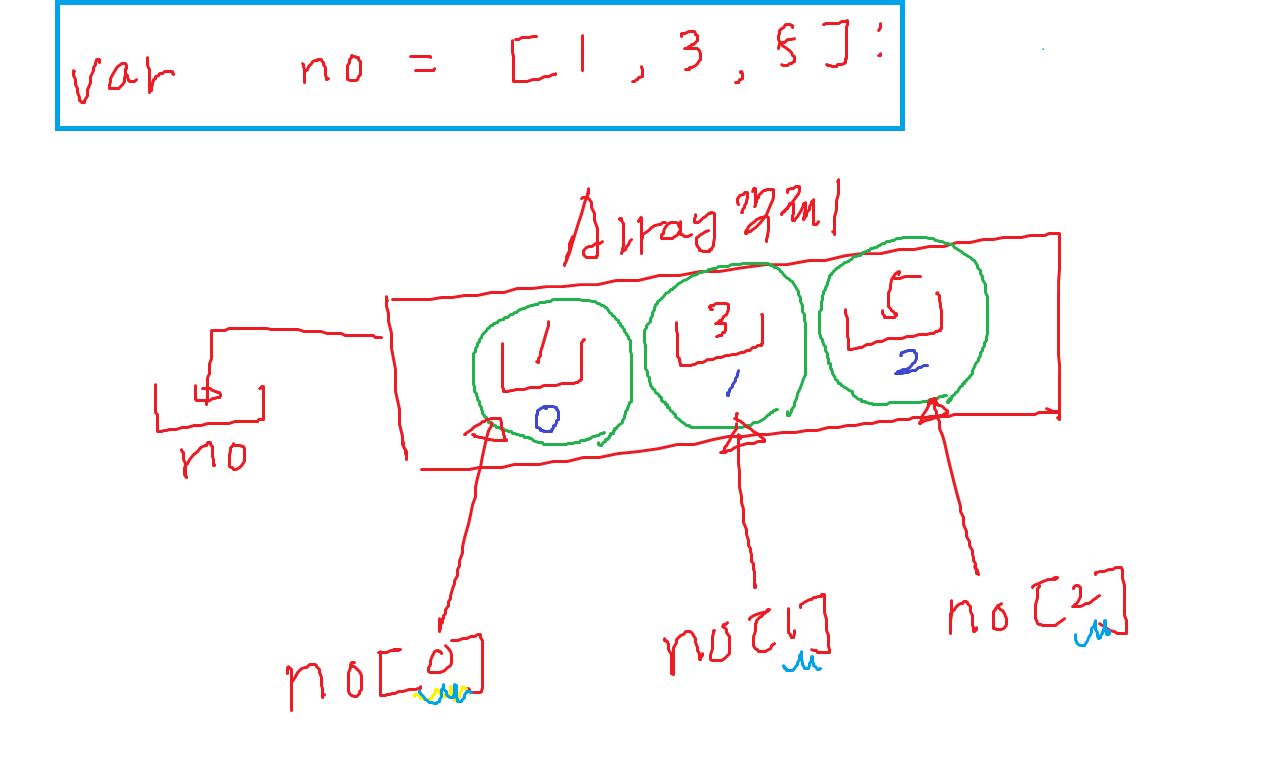 var no = [1, 3, 5]:
Array 객체
1 3 5
0 1 2
no
no[0] no[1] no[2]